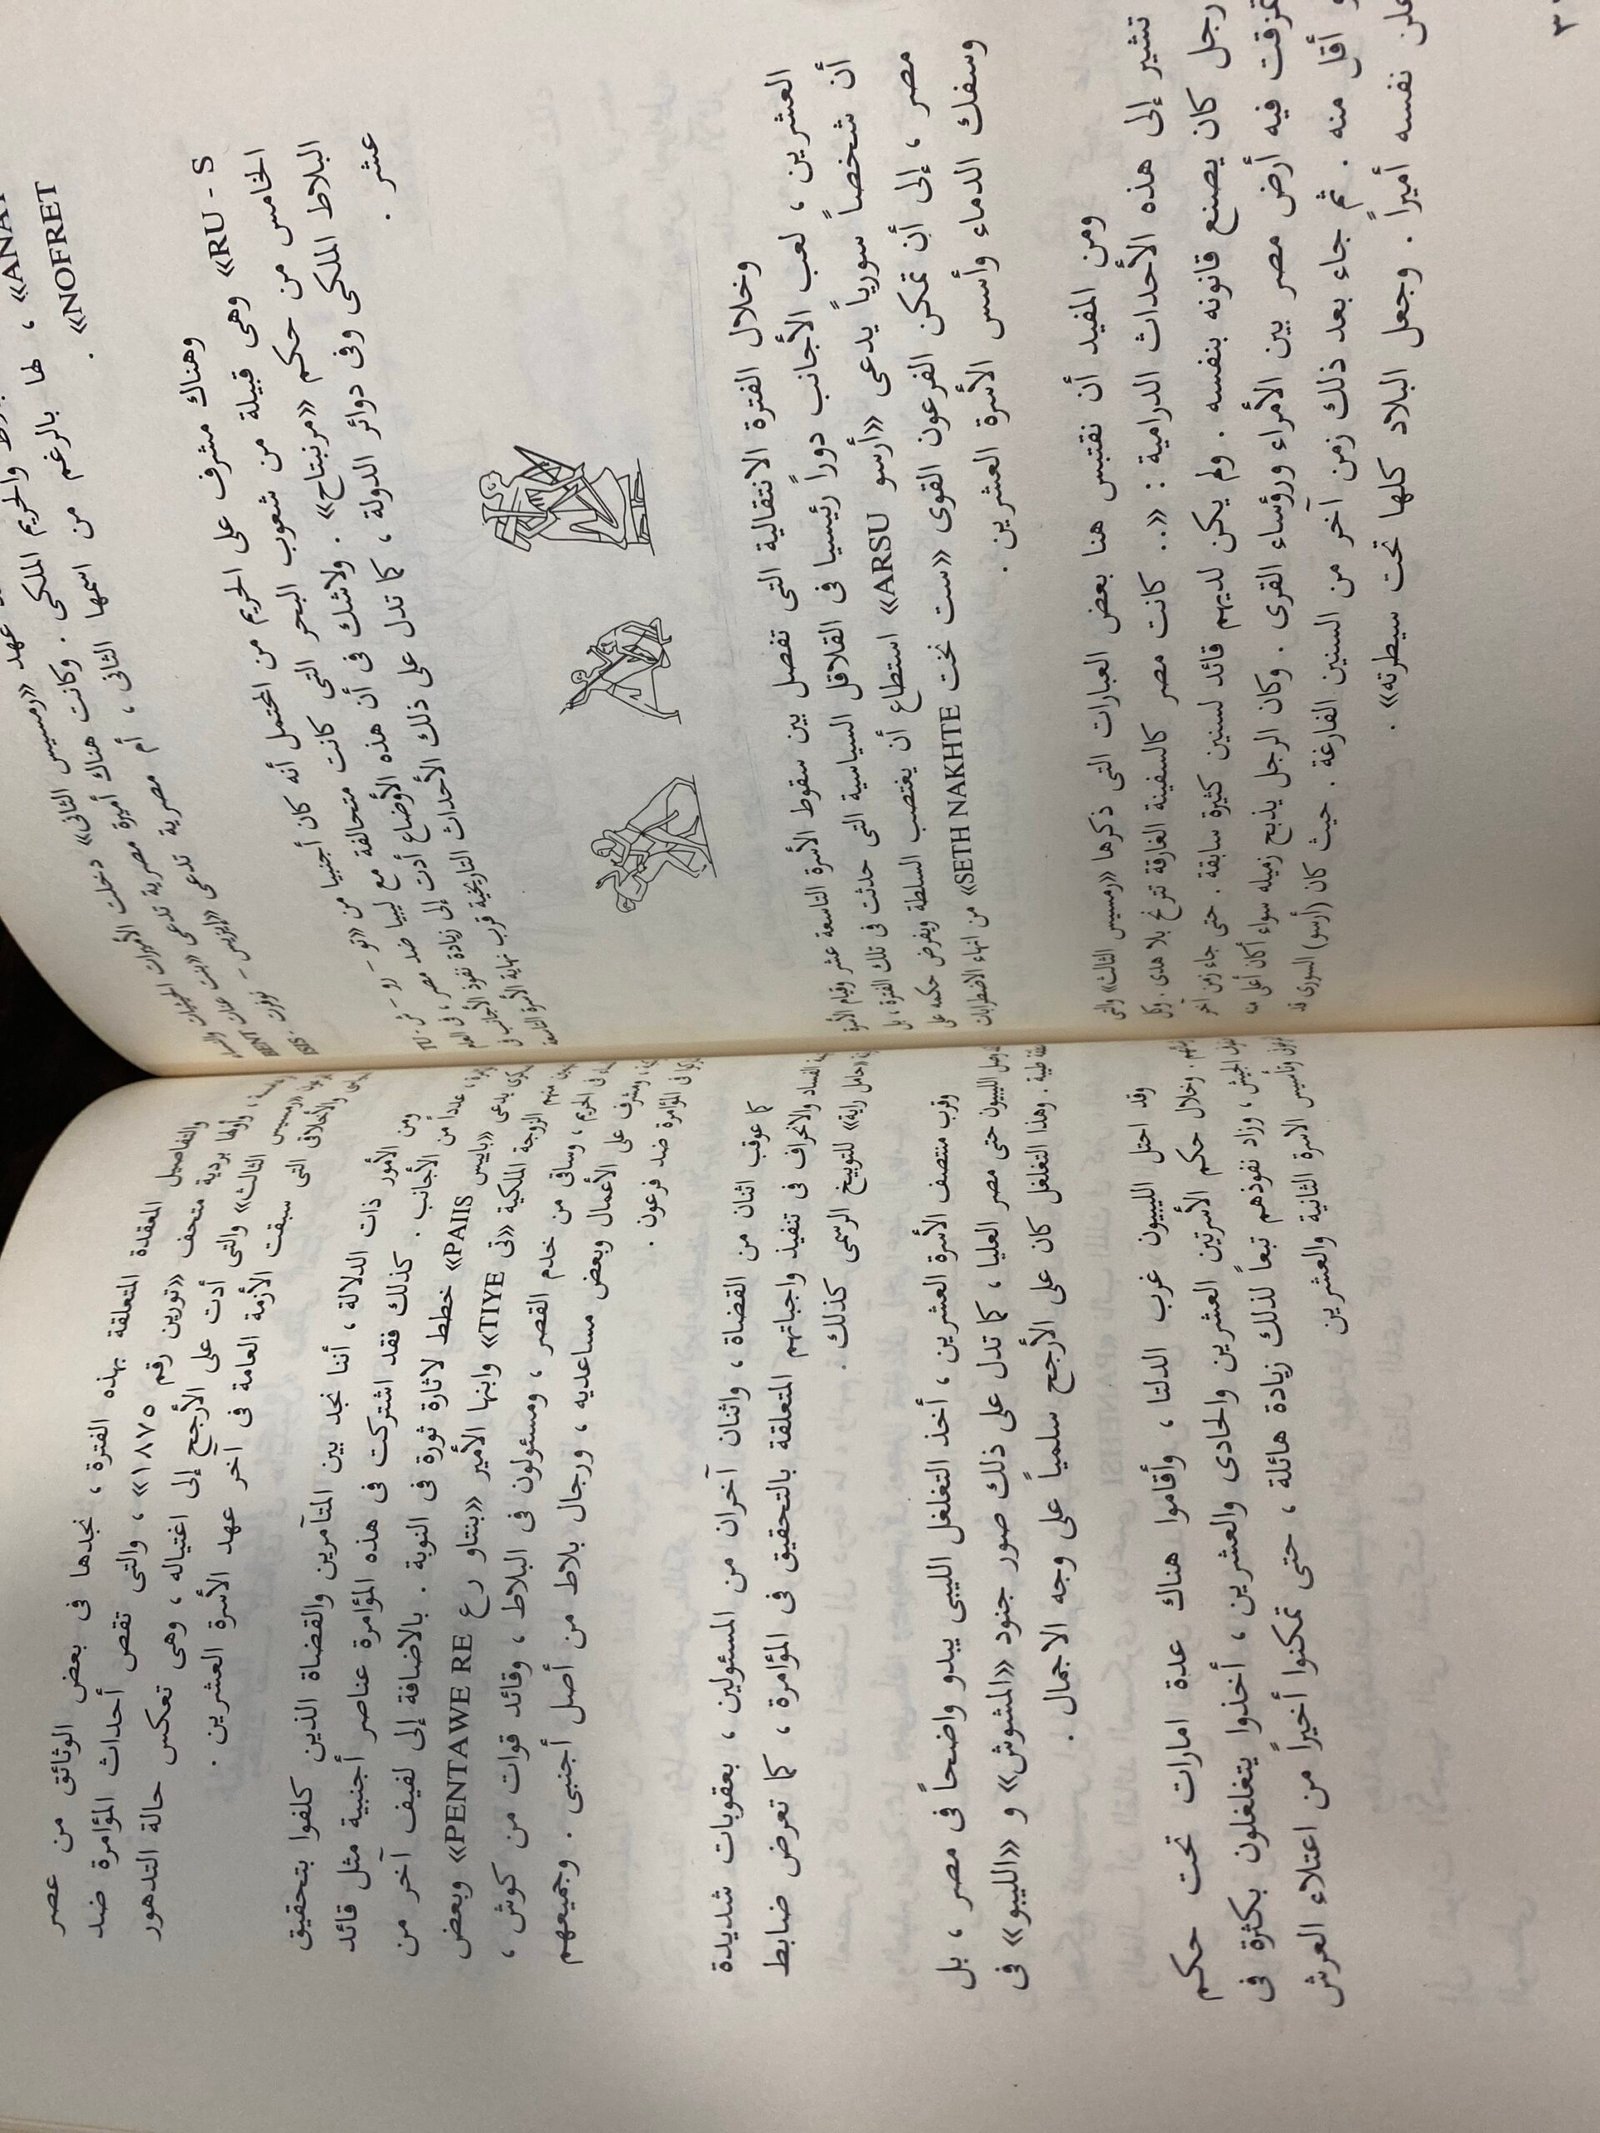 عهد «رمسيس الثانى» دخلت الأميرات الحيثيات
والحريم الملكى . وكانت هناك أميرة مصرية تدعى «بنت عنات BENT
ANAT» ، لها بالرغم من اسمها الثانى ، أم مصرية تدعى «إيزيس - نوفرت ISIS
NOFRET» .
وهناك مشرف على الحريم من المحتمل أنه كان أجنبيا من «تو - رو - ش TU -
RU - S» وهى قبيلة من شعوب البحر التى كانت متحالفة مع ليبيا ضد مصر ، فى العام
الخامس من حكم «مرنبتاح» . ولاشك فى أن هذه الأوضاع أدت إلى زيادة نفوذ الأجانب فى
البلاط الملكى وفى دوائر الدولة ، كما تدل على ذلك الأحداث التاريخية قرب نهاية الأسرة التاسعة
عشر .
وخلال الفترة الانتقالية التى تفصل بين سقوط الأسرة التاسعة عشر وقيام الأسرة
العشرين ، لعب الأجانب دوراً رئيسيا فى القلاقل السياسية التى حدثت فى تلك الفترة ، بل
أن شخصاً سورياً يدعى «أرسو ARSU» استطاع أن يغتصب السلطة ويفرض حكمه على
مصر ، إلى أن تمكن الفرعون القوى «ست نخت SETH NAKHTE» من انهاء الاضطرابات
وسفك الدماء وأسس الأسرة العشرين .
ومن المفيد أن نقتبس هنا بعض العبارات التى ذكرها «رمسيس الثالث» والتى
تشير إلى هذه الأحداث الدرامية : «.. كانت مصر كالسفينة الغارقة تترنح بلا هدى . وكل
رجل كان يصنع قانونه بنفسه . ولم يكن لديهم قائد لسنين كثيرة سابقة . حتى جاء زمن آخر
تمزقت فيه أرض مصر بين الأمراء ورؤساء القرى . وكان الرجل يذبح زميله سواء أكان أعلى منه
و أقل منه . ثم جاء بعد ذلك زمن آخر من السنين الفارغة . حيث كان (أرسو) السورى قد
علن نفسه أميراً . وجعل البلاد كلها تحت سيطرته» .
والتفاصيل المعقدة المتعلقة بهذه الفترة ، نجدها فى بعض الوثائق من عصر
، وأولها بردية متحف «تورين رقم ١٨٧٥» ، والتى تقص أحداث المؤامرة ضد
«رمسيس الثالث» والتى أدت على الأرجح إلى اغتياله ، وهى تعكس حالة التدهور
والأخلاقى التى سبقت الأزمة العامة فى آخر عهد الأسرة العشرين .
ومن الأمور ذات الدلالة ، أننا نجد بين المتآمرين والقضاة الذين كلفوا بتحقيق
، عدداً من الأجانب . كذلك فقد اشتركت فى هذه المؤامرة عناصر أجنبية مثل قائد
يدعى «باييس PAIIS» خطط لاثارة ثورة فى النوبة . بالاضافة إلى لفيف آخر من
منهم الزوجة الملكية «تى TIYE» وابنها الأمير «بنتاو رع PENTAWE RE» وبعض
فى الحريم ، وساقى من خدم القصر ، ومسئولون فى البلاط ، وقائد قوات من كوش ،
، ومشرف على الأعمال وبعض مساعديه ، ورجال بلاط من أصل أجنبى . وجميعهم
فى المؤامرة ضد فرعون .
كما عوقب اثنان من القضاة ، واثنان آخران من المسئولين ، بعقوبات شديدة
الفساد والانحراف فى تنفيذ واجباتهم المتعلقة بالتحقيق فى المؤامرة ، كما تعرض ضابط
«حامل راية» للتوبيخ الرسمى كذلك .
وقرب منتصف الأسرة العشرين ، أخذ التغلغل الليبى يبدو واضحاً فى مصر ، بل
وصل الليبيون حتى مصر العليا ، كما تدل على ذلك صور جنود «المشوش» و «الليبو» فى
طيبة . وهذا التغلغل كان على الأرجح سلمياً على وجه الاجمال .
وقد احتل الليبيون غرب الدلتا ، وأقاموا هناك عدة امارات تحت حكم
. وخلال حكم الأسرتين العشرين والحادى والعشرين ، أخذوا يتغلغلون بكثرة فى
الجيش ، وزاد نفوذهم تبعاً لذلك زيادة هائلة ، حتى تمكنوا أخيراً من اعتلاء العرش
وتأسيس الأسرة الثانية والعشرين